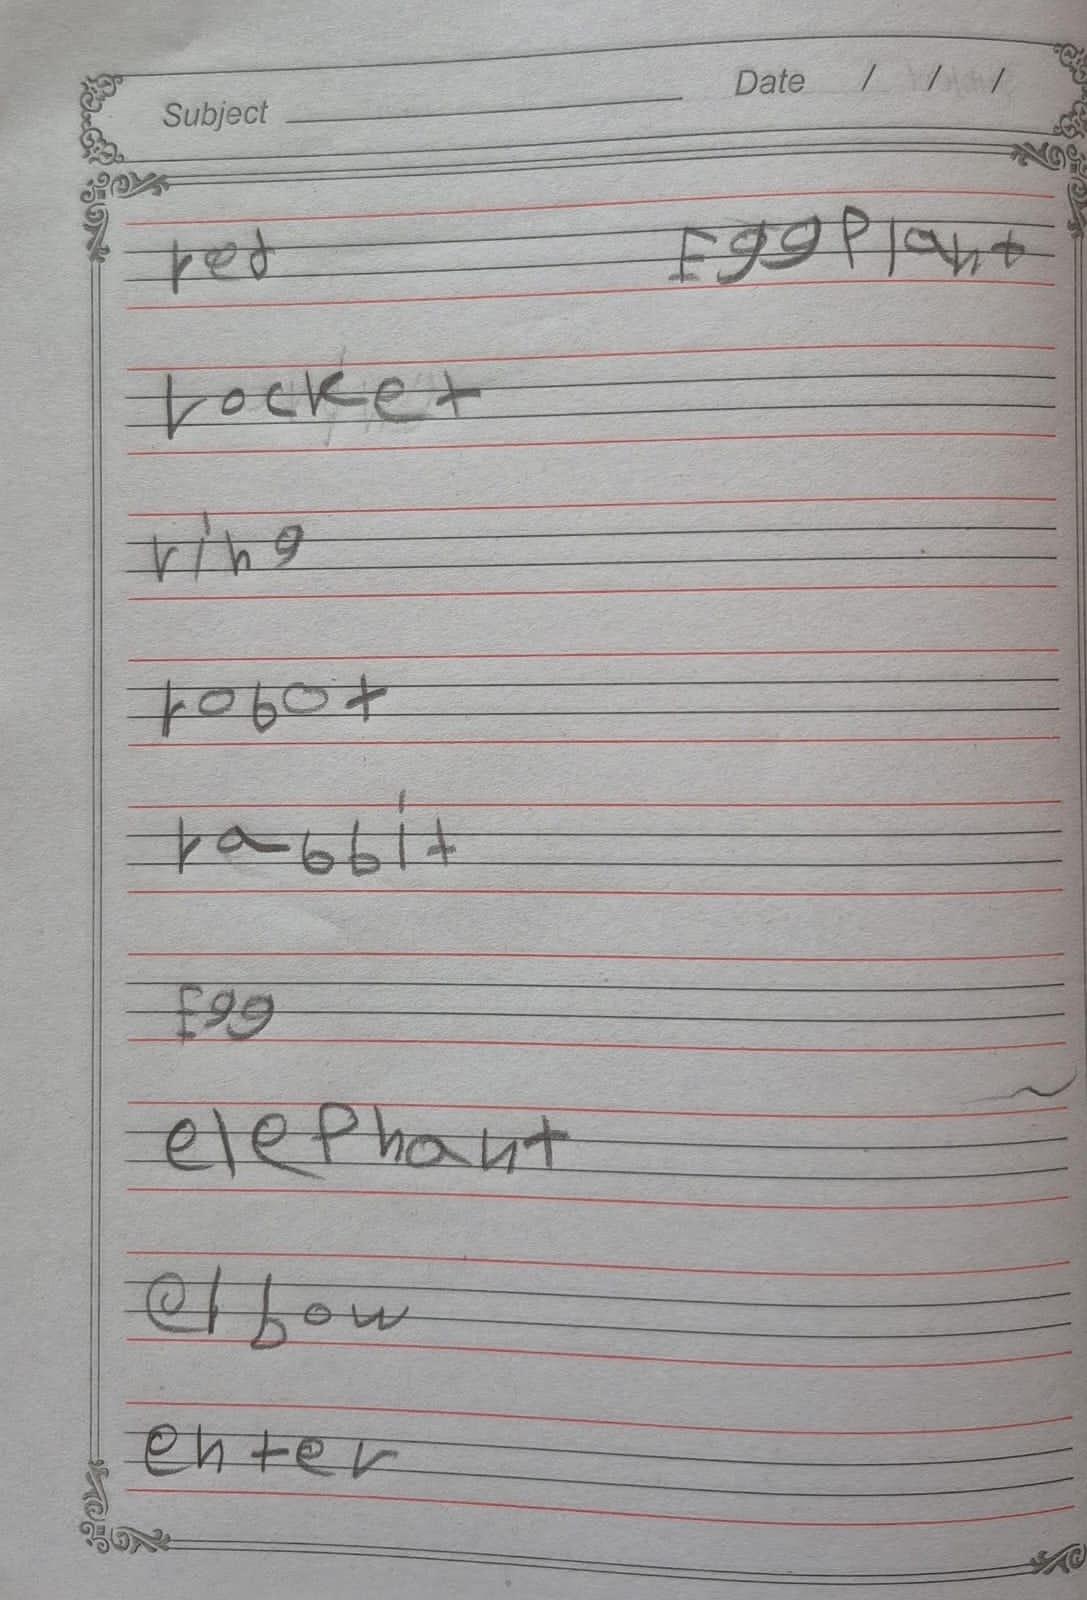 Subject Date / / /
red EggPlant
rocket
ring
robot
rabbit
Egg
elePhant
elbow
enter